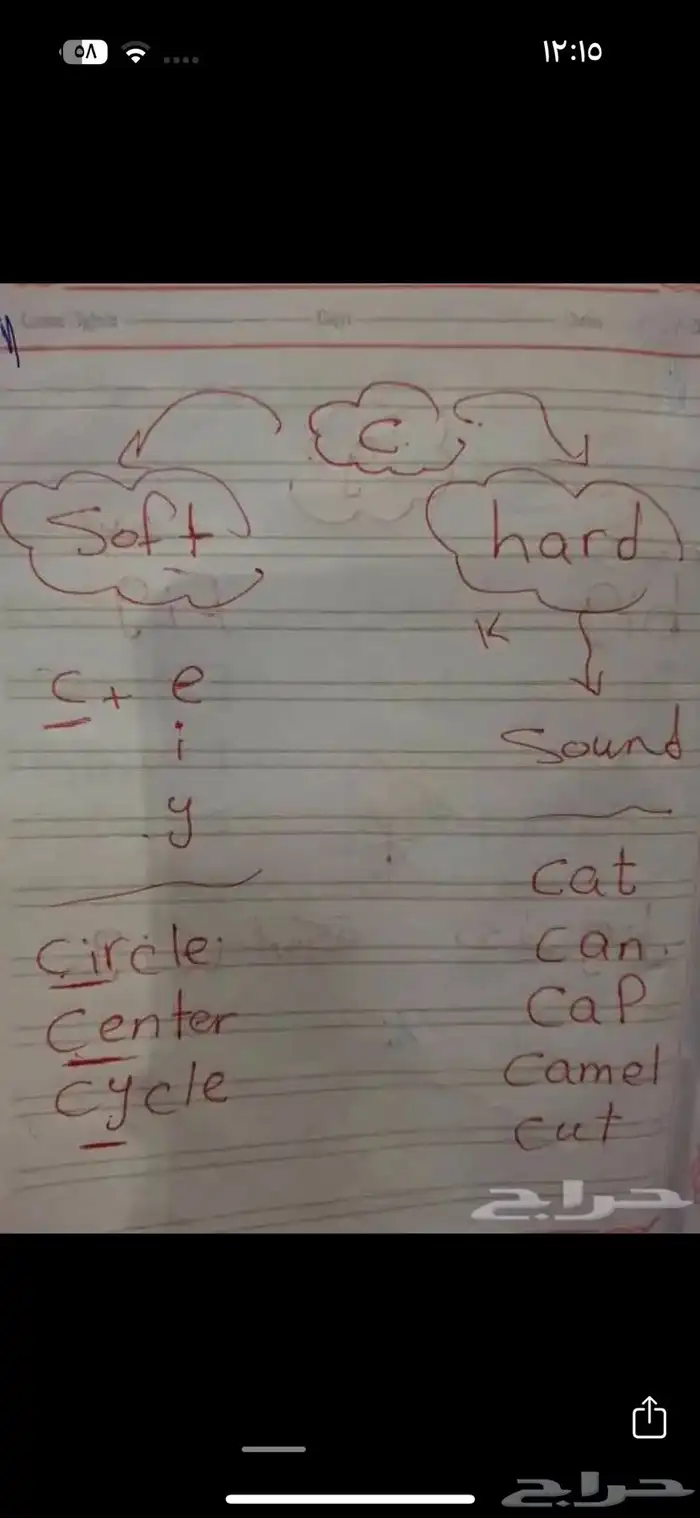 ٥٨
١٢:١٥
Days
C
Soft
hard
K
C + e
i
y
Sound
Circle
Center
Cycle
cat
can
cap
camel
cut
حراج
حراج